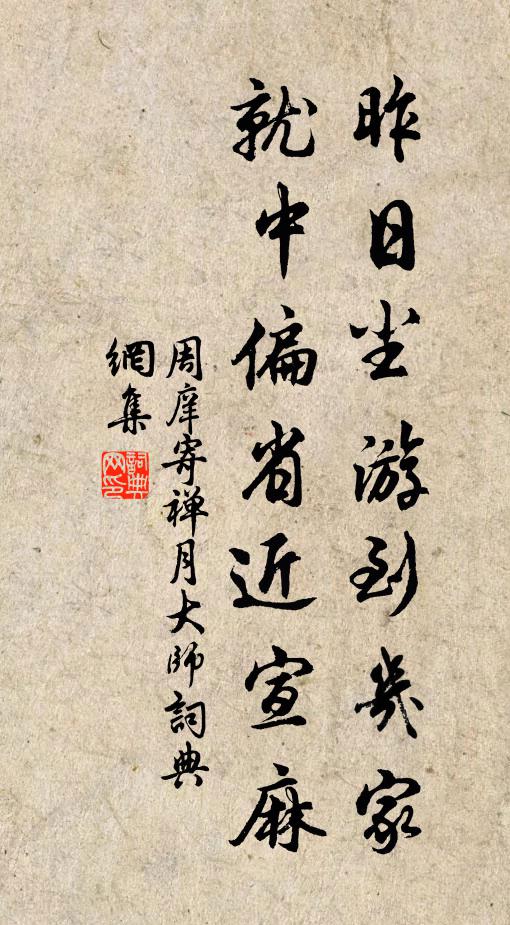 昨日尘游到幾家
就中偏省近宣麻
周庠寄禅月大師詞典
網集
詞典
网印